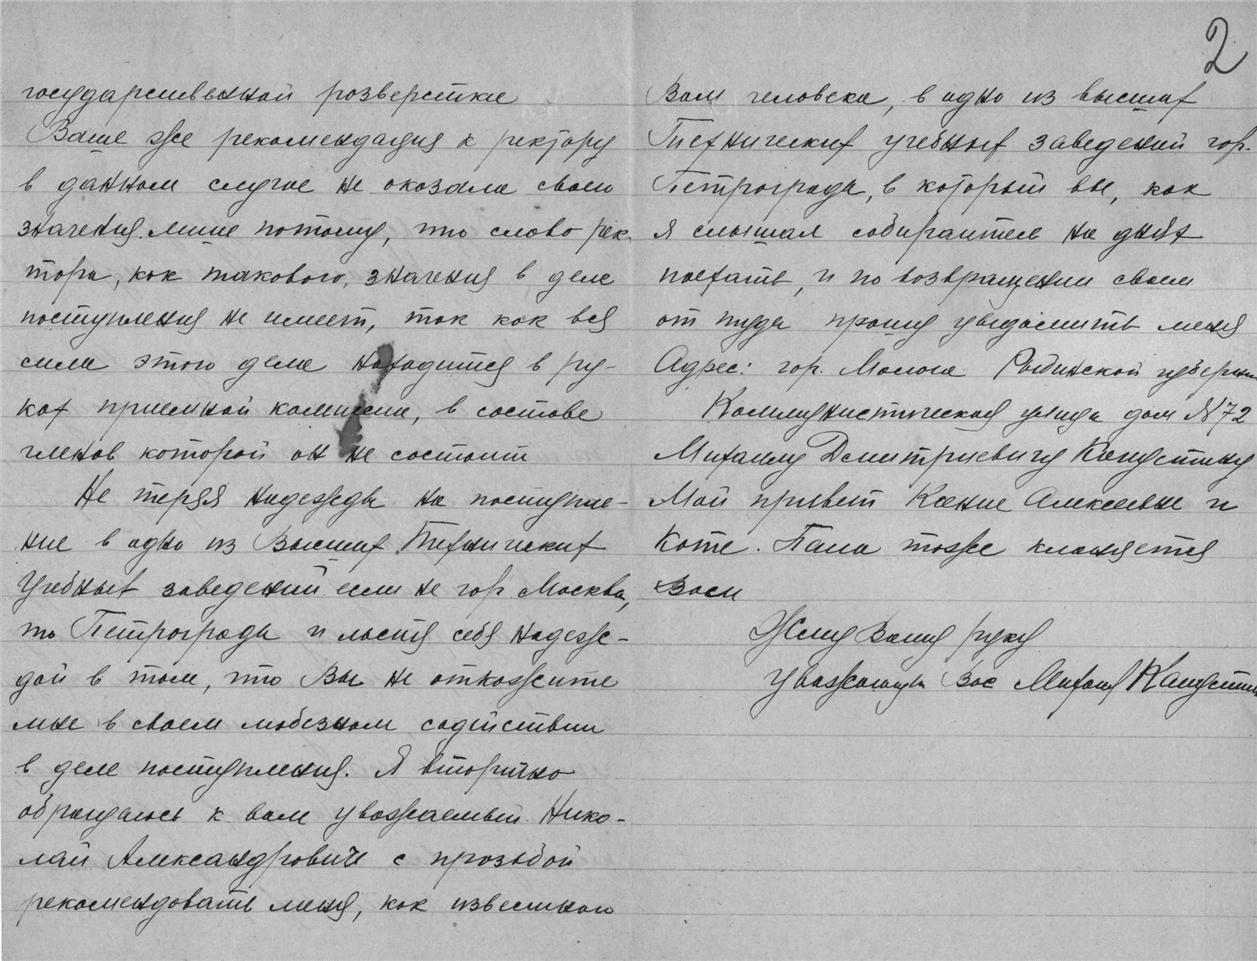 2
государственной розверстке
Ваше же рекомендация к ректору
в данном случае не оказала свое
значения лише потому, что слово рек-
тора, как такового, значения в деле
поступления не имеет, так как вся
сила этого дела находится в ру-
ках приемной комиссии, в составе
членов которой он не состоит
Не теряя надежды на поступле-
ние в одно из Высших Технических
Учебных заведений если не гор Москва,
то Петрограда и льстя себя надеж-
дой в том, что Вы не откажите
мне в своем любезном содействии
в деле поступления. Я вторично
обращаюсь к вам уважаемый Нико-
лай Александрович с прозьбой
рекомендовать меня, как известного
Вам человека, в одно из высших
Технических учебных заведений гор.
Петрограда, в который вы, как
я слышал собираитесь на днях
поехать, и по возвращении своем
от туда прошу уведомить меня
Адрес: гор. Молога Рыбинской губернии
Коммунистическая улица дом №72
Михаилу Дмитриевичу Капустину
Мой привет Ксение Алексеевне и
Коте. Папа тоже кланяется
Вам
Жму Вашу руку
Уважающий Вас Михаил Капустин